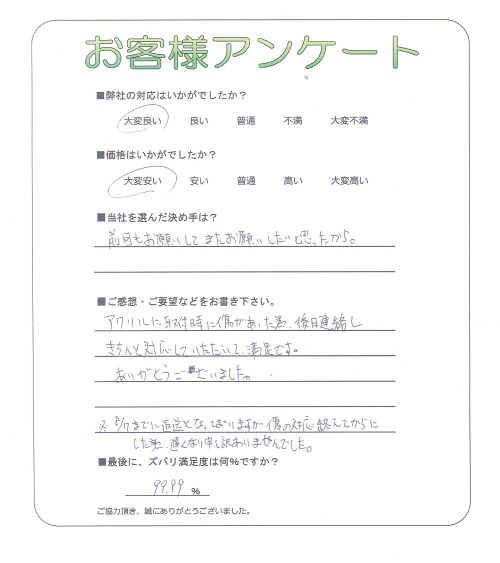 お客様アンケート
■弊社の対応はいかがでしたか？
大変良い 良い 普通 不満 大変不満
■価格はいかがでしたか？
大変安い 安い 普通 高い 大変高い
■当社を選んだ決め手は？
前回もお願いしてまたお願いしたいと思ったから。
■ご感想・ご要望などをお書き下さい。
アクリルに取付時に傷があった為、後日連絡し
きちんと対応していただいて、満足です。
ありがとうございました。
※ 8/7までに返送となっておりますが傷の対応終えてからに
した為、遅くなり申し訳ありませんでした。
■最後に、ズバリ満足度は何%ですか？
99.99 %
ご協力頂き、誠にありがとうございました。